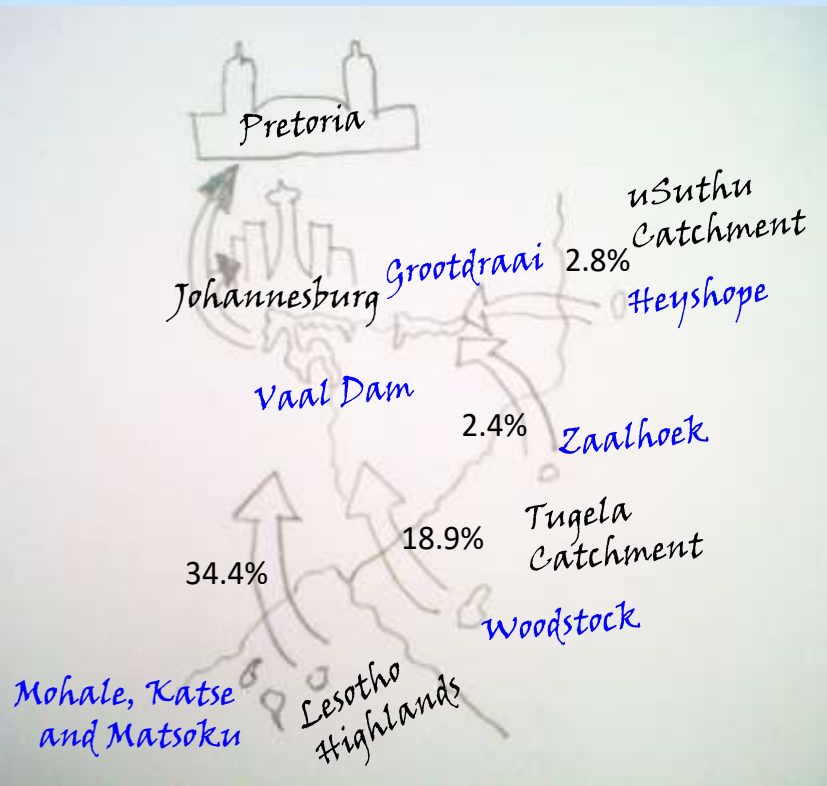 Pretoria
uSuthu
Catchment
Grootdraai
2.8%
Heyshope
Johannesburg
Vaal Dam
2.4%
Zaalhoek
Tugela
Catchment
18.9%
34.4%
Woodstock
Mohale, Katse
and Matsoku
Lesotho
Highlands